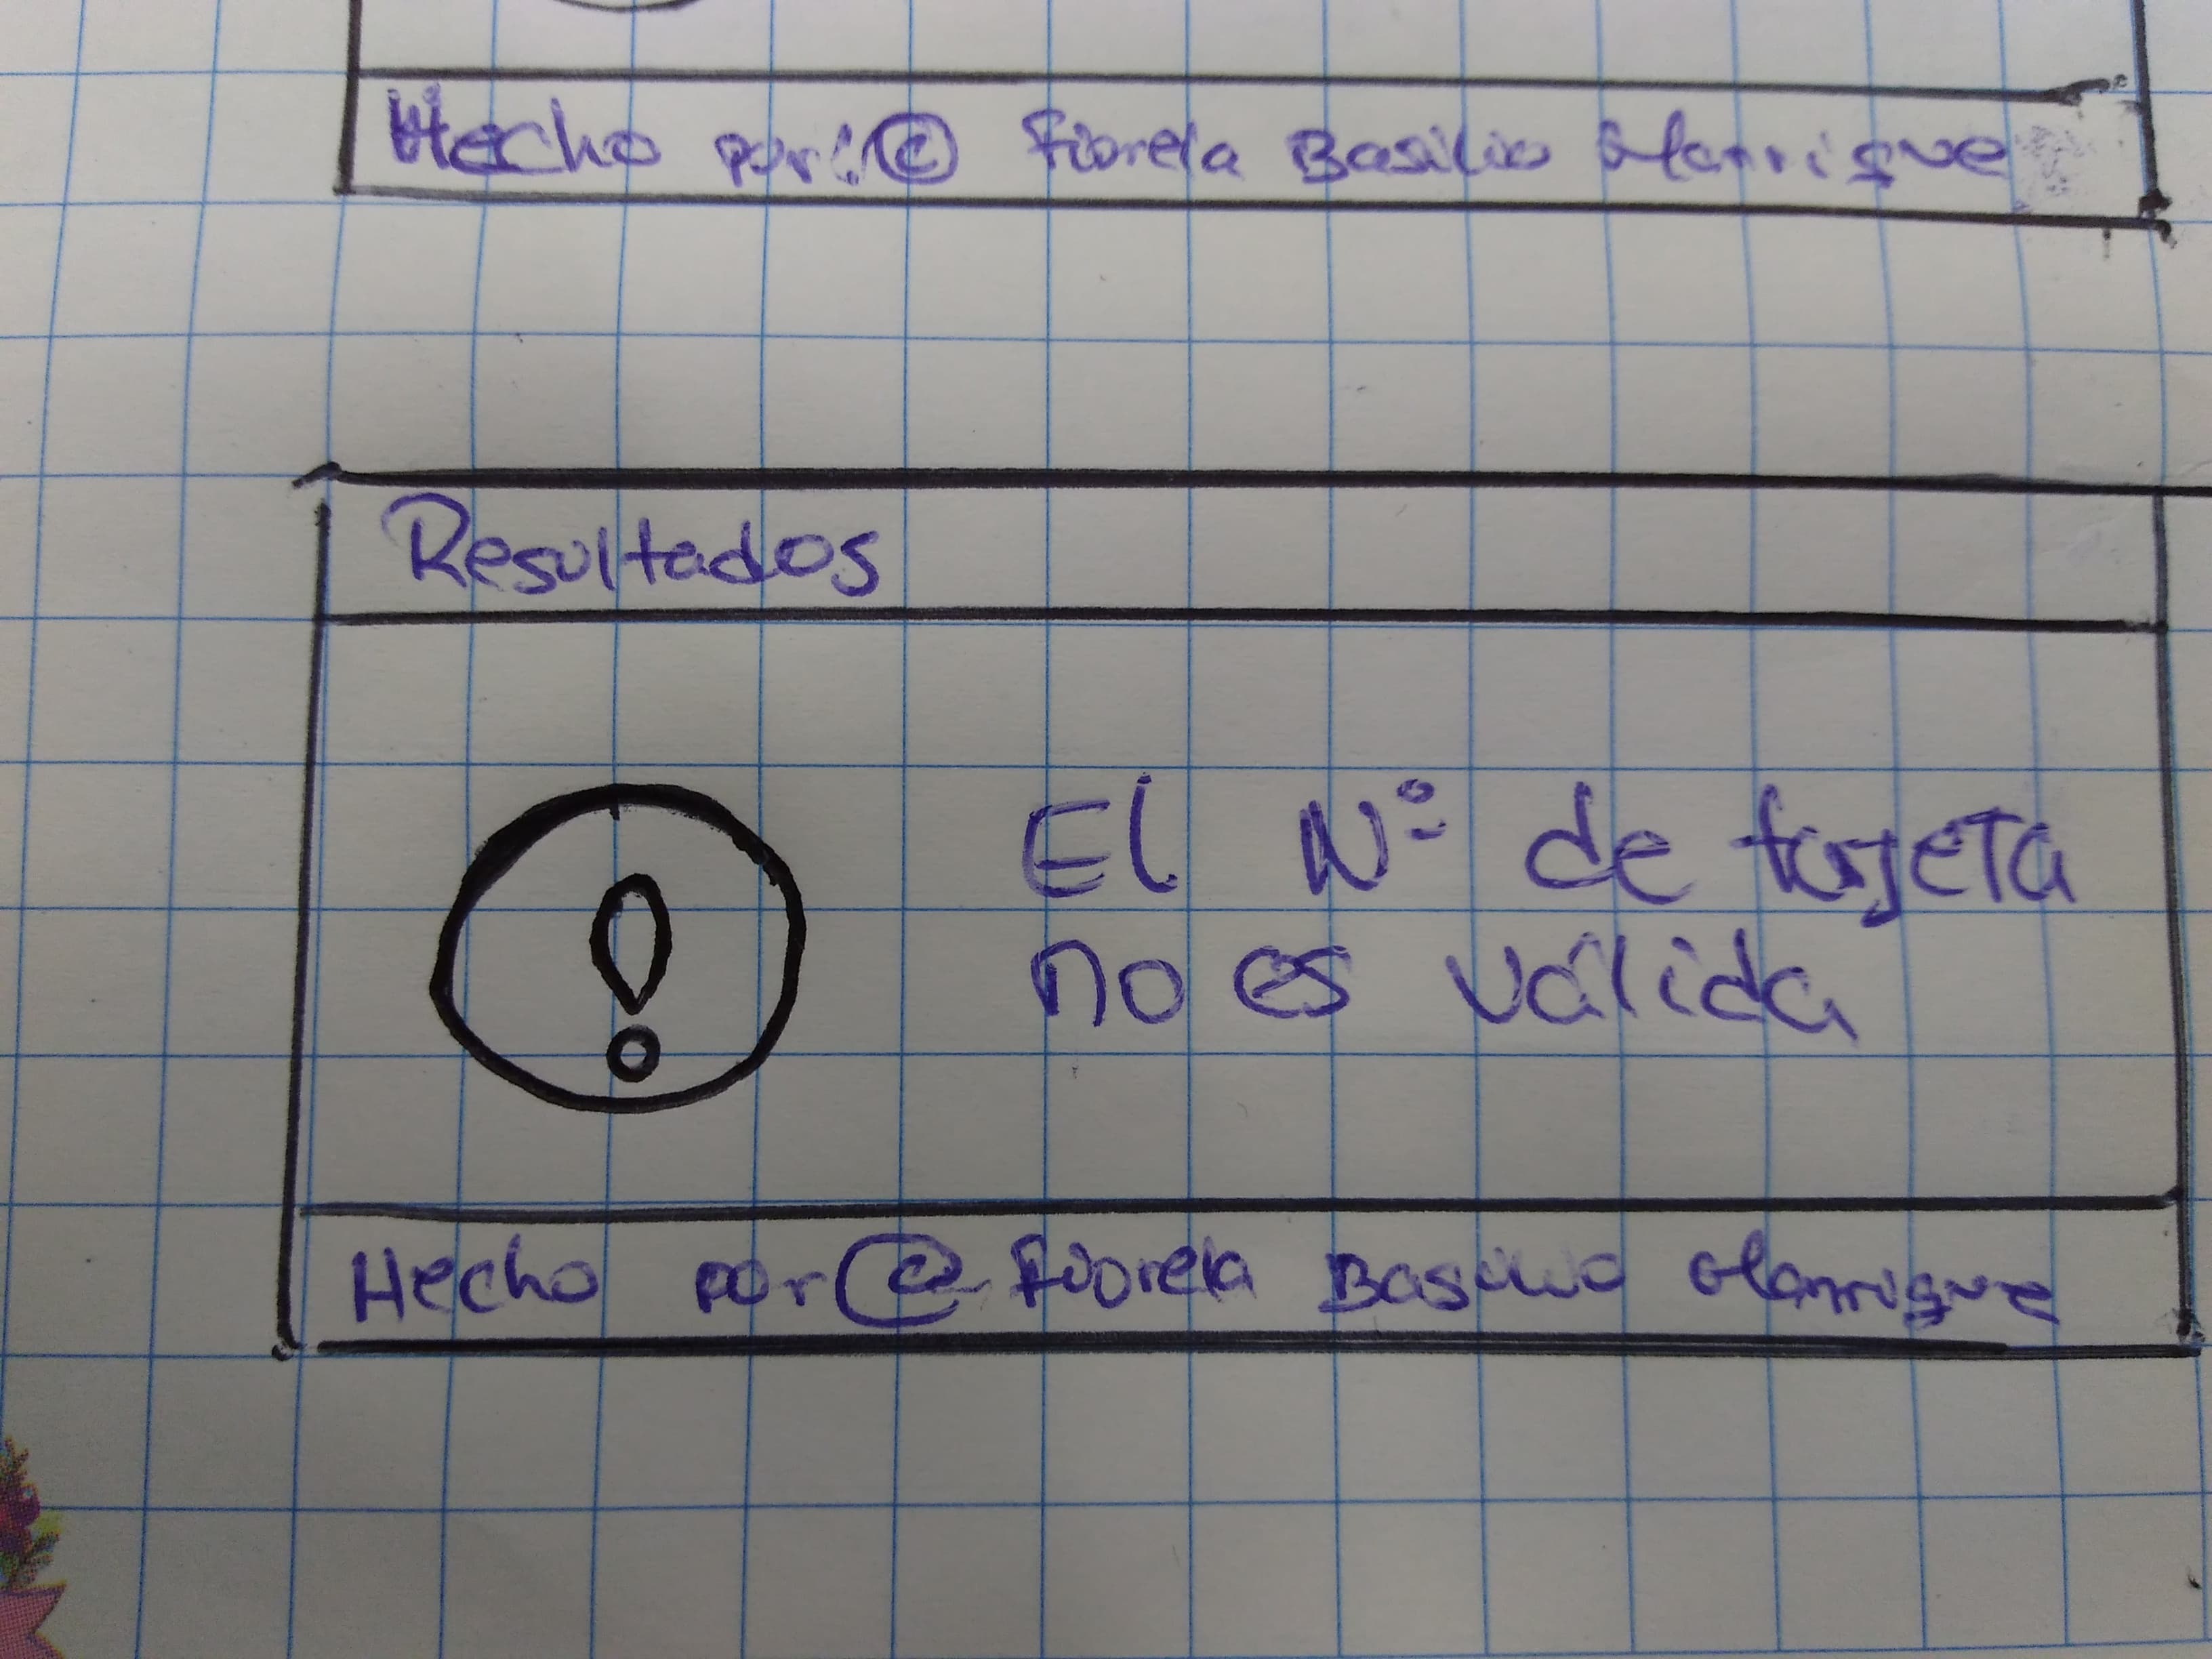 Hecho por: © Fiorela Basilio Manrique
Resultados
El N° de tarjeta
no es válida
Hecho por © Fiorela Basilio Manrique